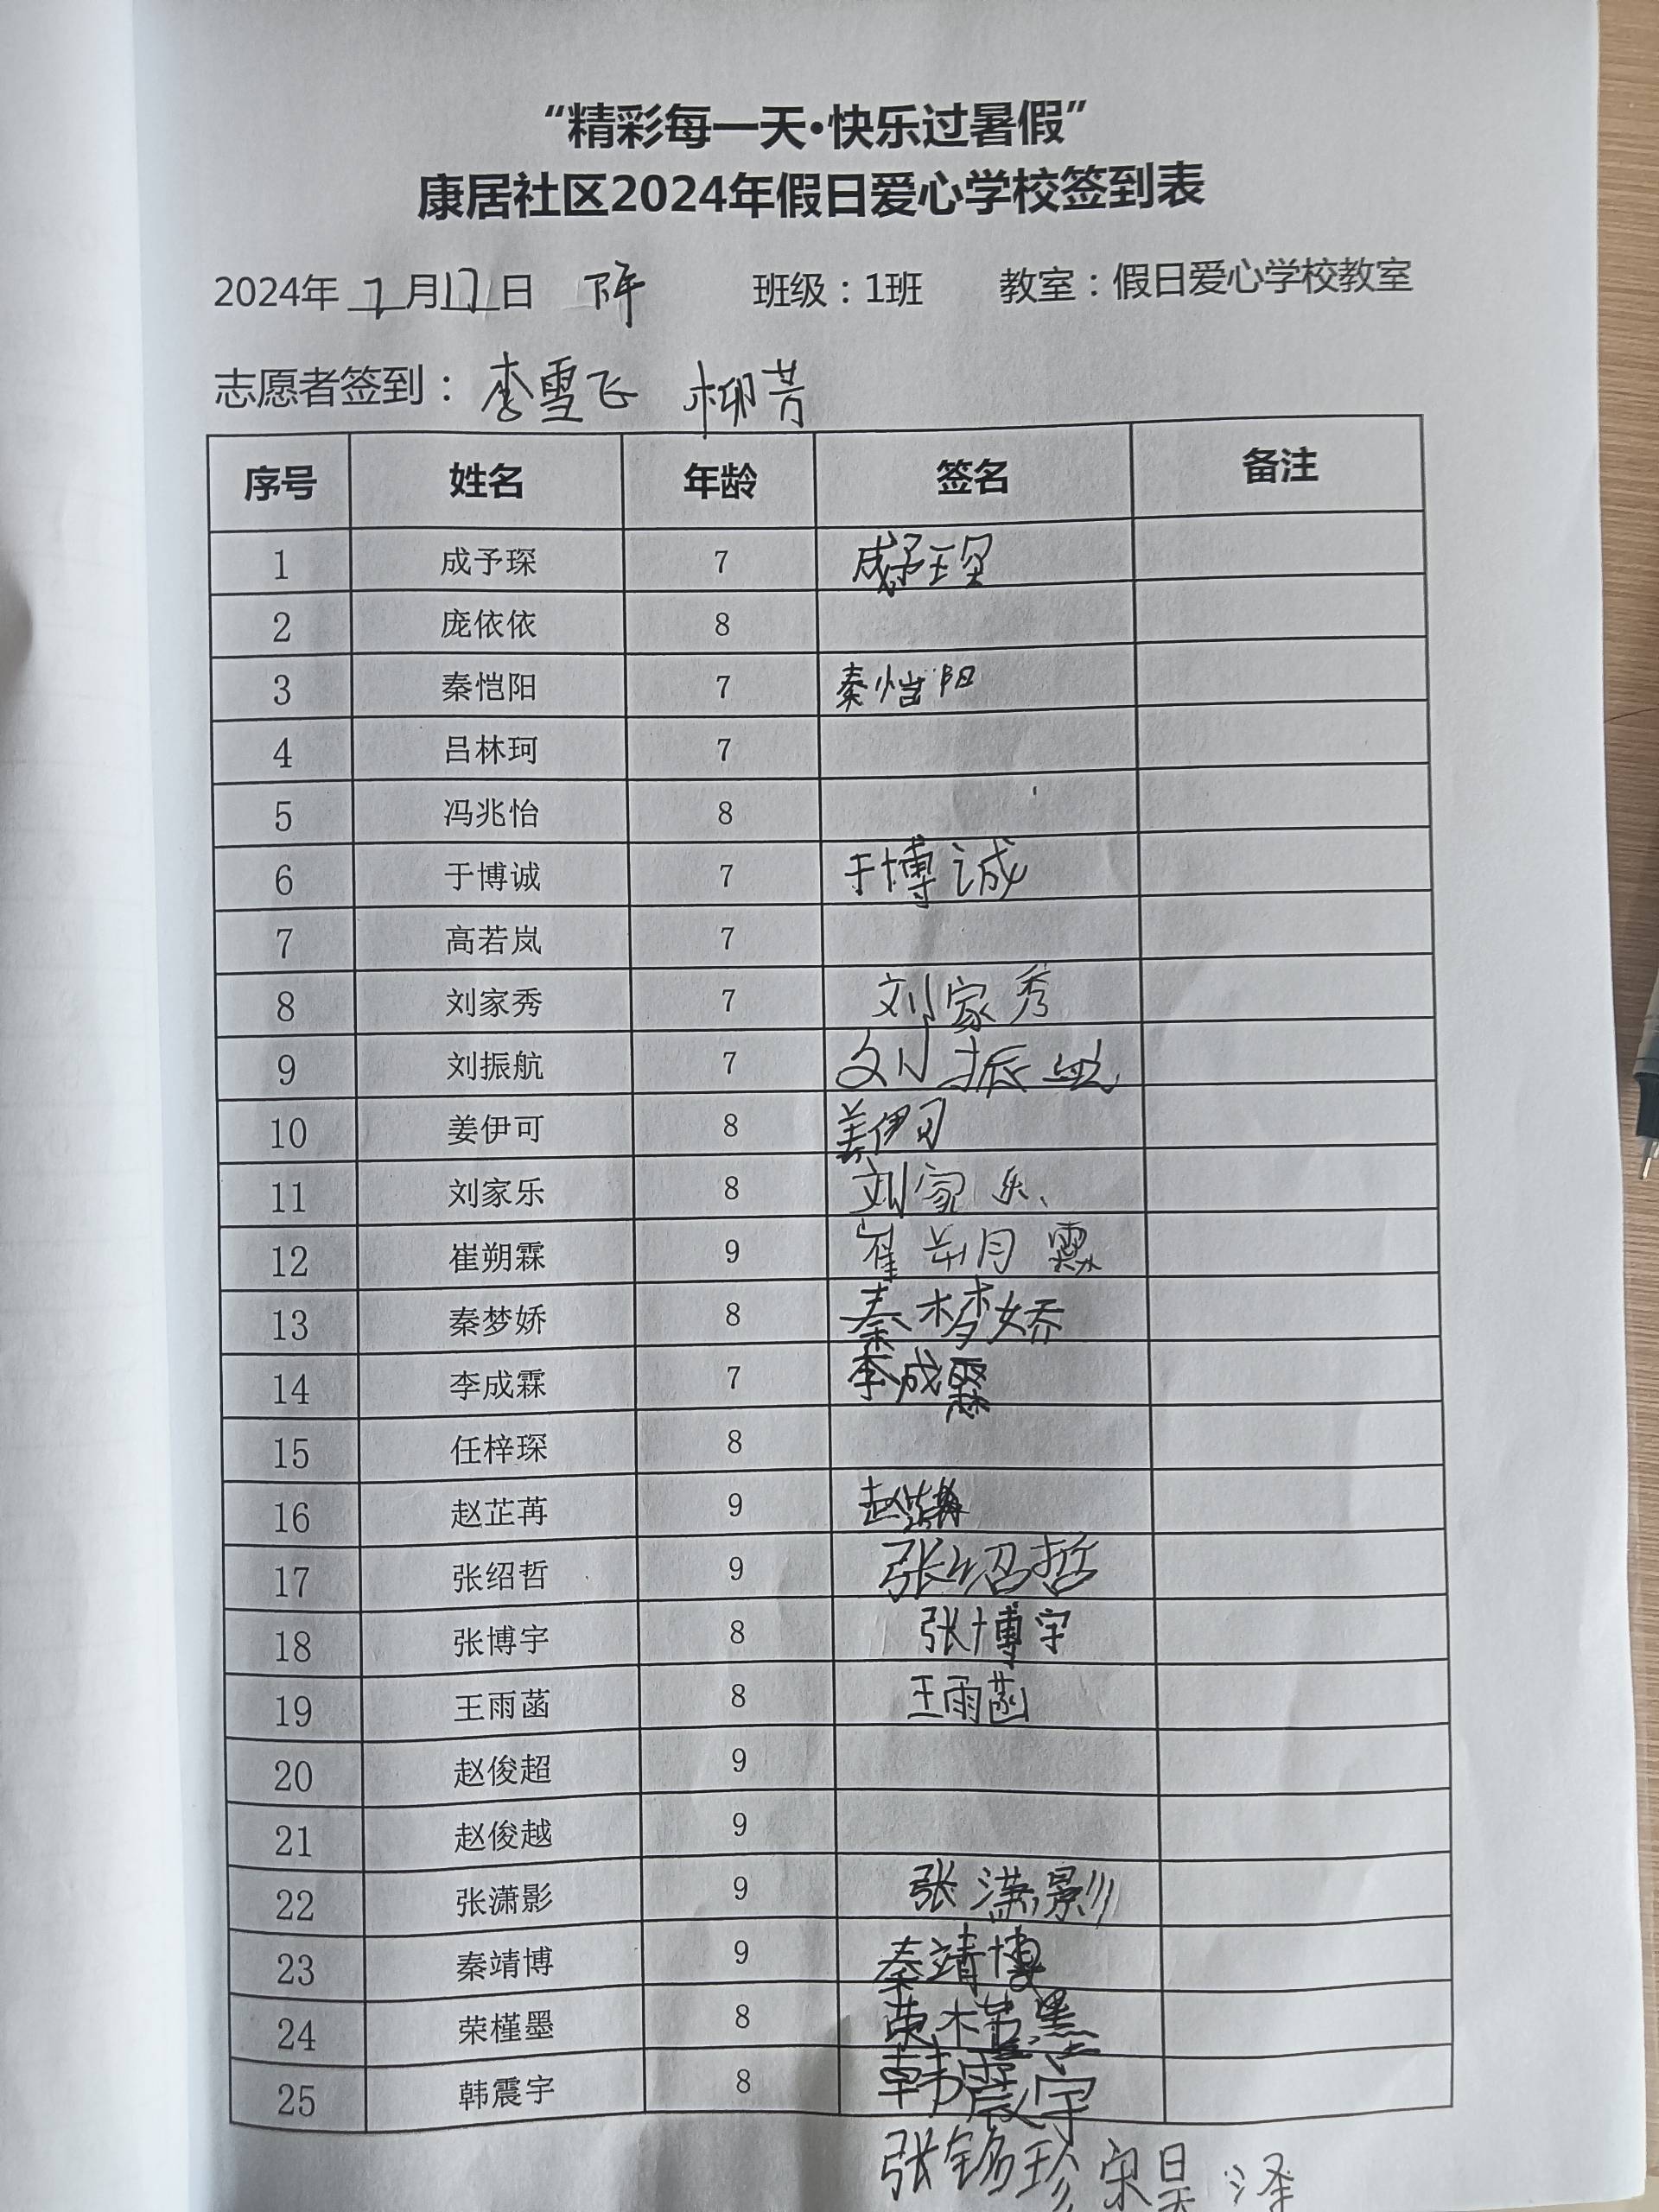 “精彩每一天·快乐过暑假”
康居社区2024年假日爱心学校签到表
2024年 7月17日 下午 班级：1班 教室：假日爱心学校教室
志愿者签到：李雪飞 柳芳
序号 姓名 年龄 签名 备注
1 成予琛 7 成予琛
2 庞依依 8
3 秦恺阳 7 秦恺阳
4 吕林珂 7
5 冯兆怡 8
6 于博诚 7 于博诚
7 高若岚 7
8 刘家秀 7 刘家秀
9 刘振航 7 刘振航
10 姜伊可 8 姜伊可
11 刘家乐 8 刘家乐
12 崔朔霖 9 崔朔霖
13 秦梦娇 8 秦梦娇
14 李成霖 7 李成霖
15 任梓琛 8
16 赵芷苒 9 赵芷苒
17 张绍哲 9 张绍哲
18 张博宇 8 张博宇
19 王雨菡 8 王雨菡
20 赵俊超 9
21 赵俊越 9
22 张潇影 9 张潇影
23 秦靖博 9 秦靖博
24 荣槿墨 8 荣槿墨
25 韩震宇 8 韩震宇
张铭珍 宋昊泽